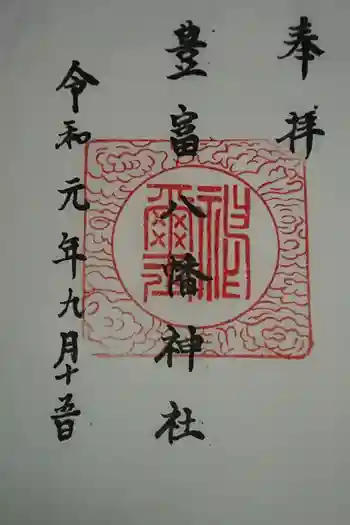 奉拝
豊富八幡神社
令和元年九月十五日